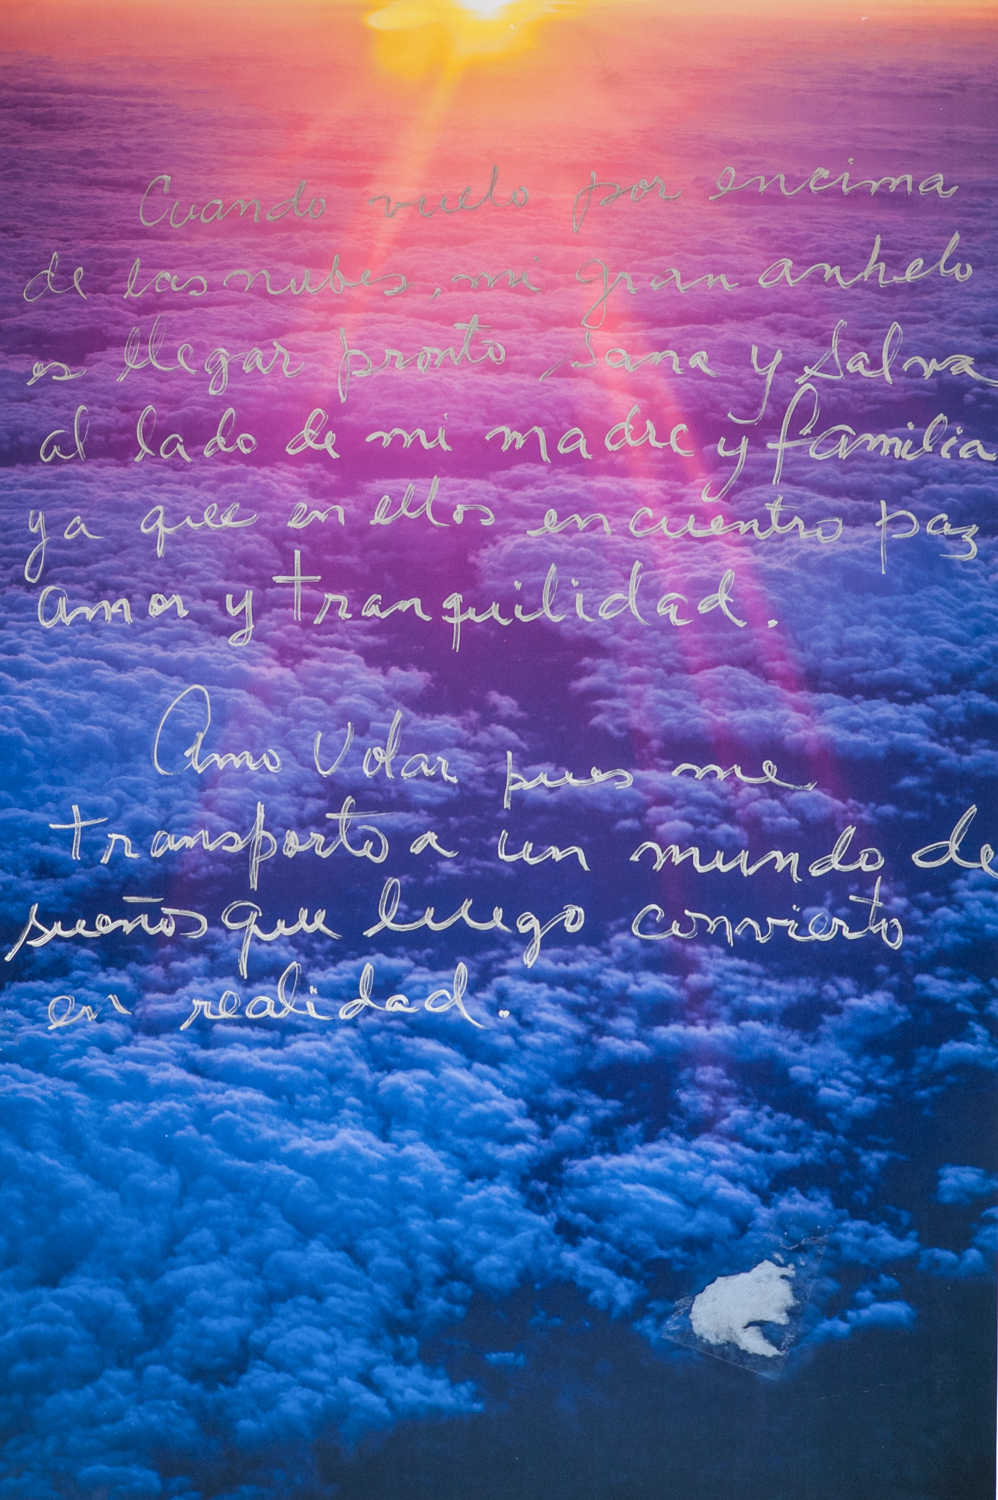 Cuando vuelo por encima
de las nubes, mi gran anhelo
es llegar pronto, sana y Salva
al lado de mi madre y familia
ya que en ellos encuentro paz
amor y tranquilidad.
Amo Volar pues me
transporto a un mundo de
sueños que luego convierto
en realidad.